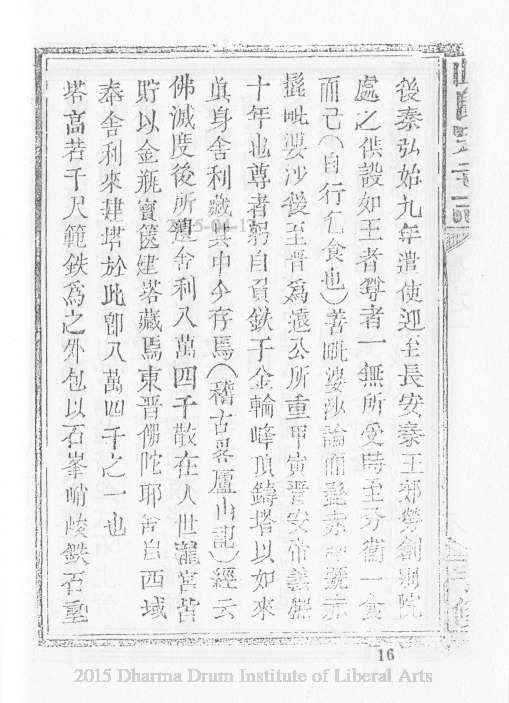 後秦弘始九年遣使迎至長安秦王郊勞創別院
處之供設如王者尊者一無所受時至分衛一食
而已（自行乞食也）善毗婆沙論而髭赤時號赤
髭毗婆沙後至晋為遠公所重甲寅晋安帝義熙
十年也尊者躬自負鉄于金輪峰頂鑄塔以如來
眞身舍利藏其中今存焉（稽古畧廬山記）經云
佛滅度後所遺舍利八萬四千散在人世龍宮昔
貯以金瓶寶篋建塔藏焉東晋佛陀耶舍自西域
奉舍利來建塔於此卽八萬四千之一也
塔高若干尺範鉄為之外包以石峯峭峻鉄石重
16
2015-04-1
2015 Dharma Drum Institute of Liberal Arts